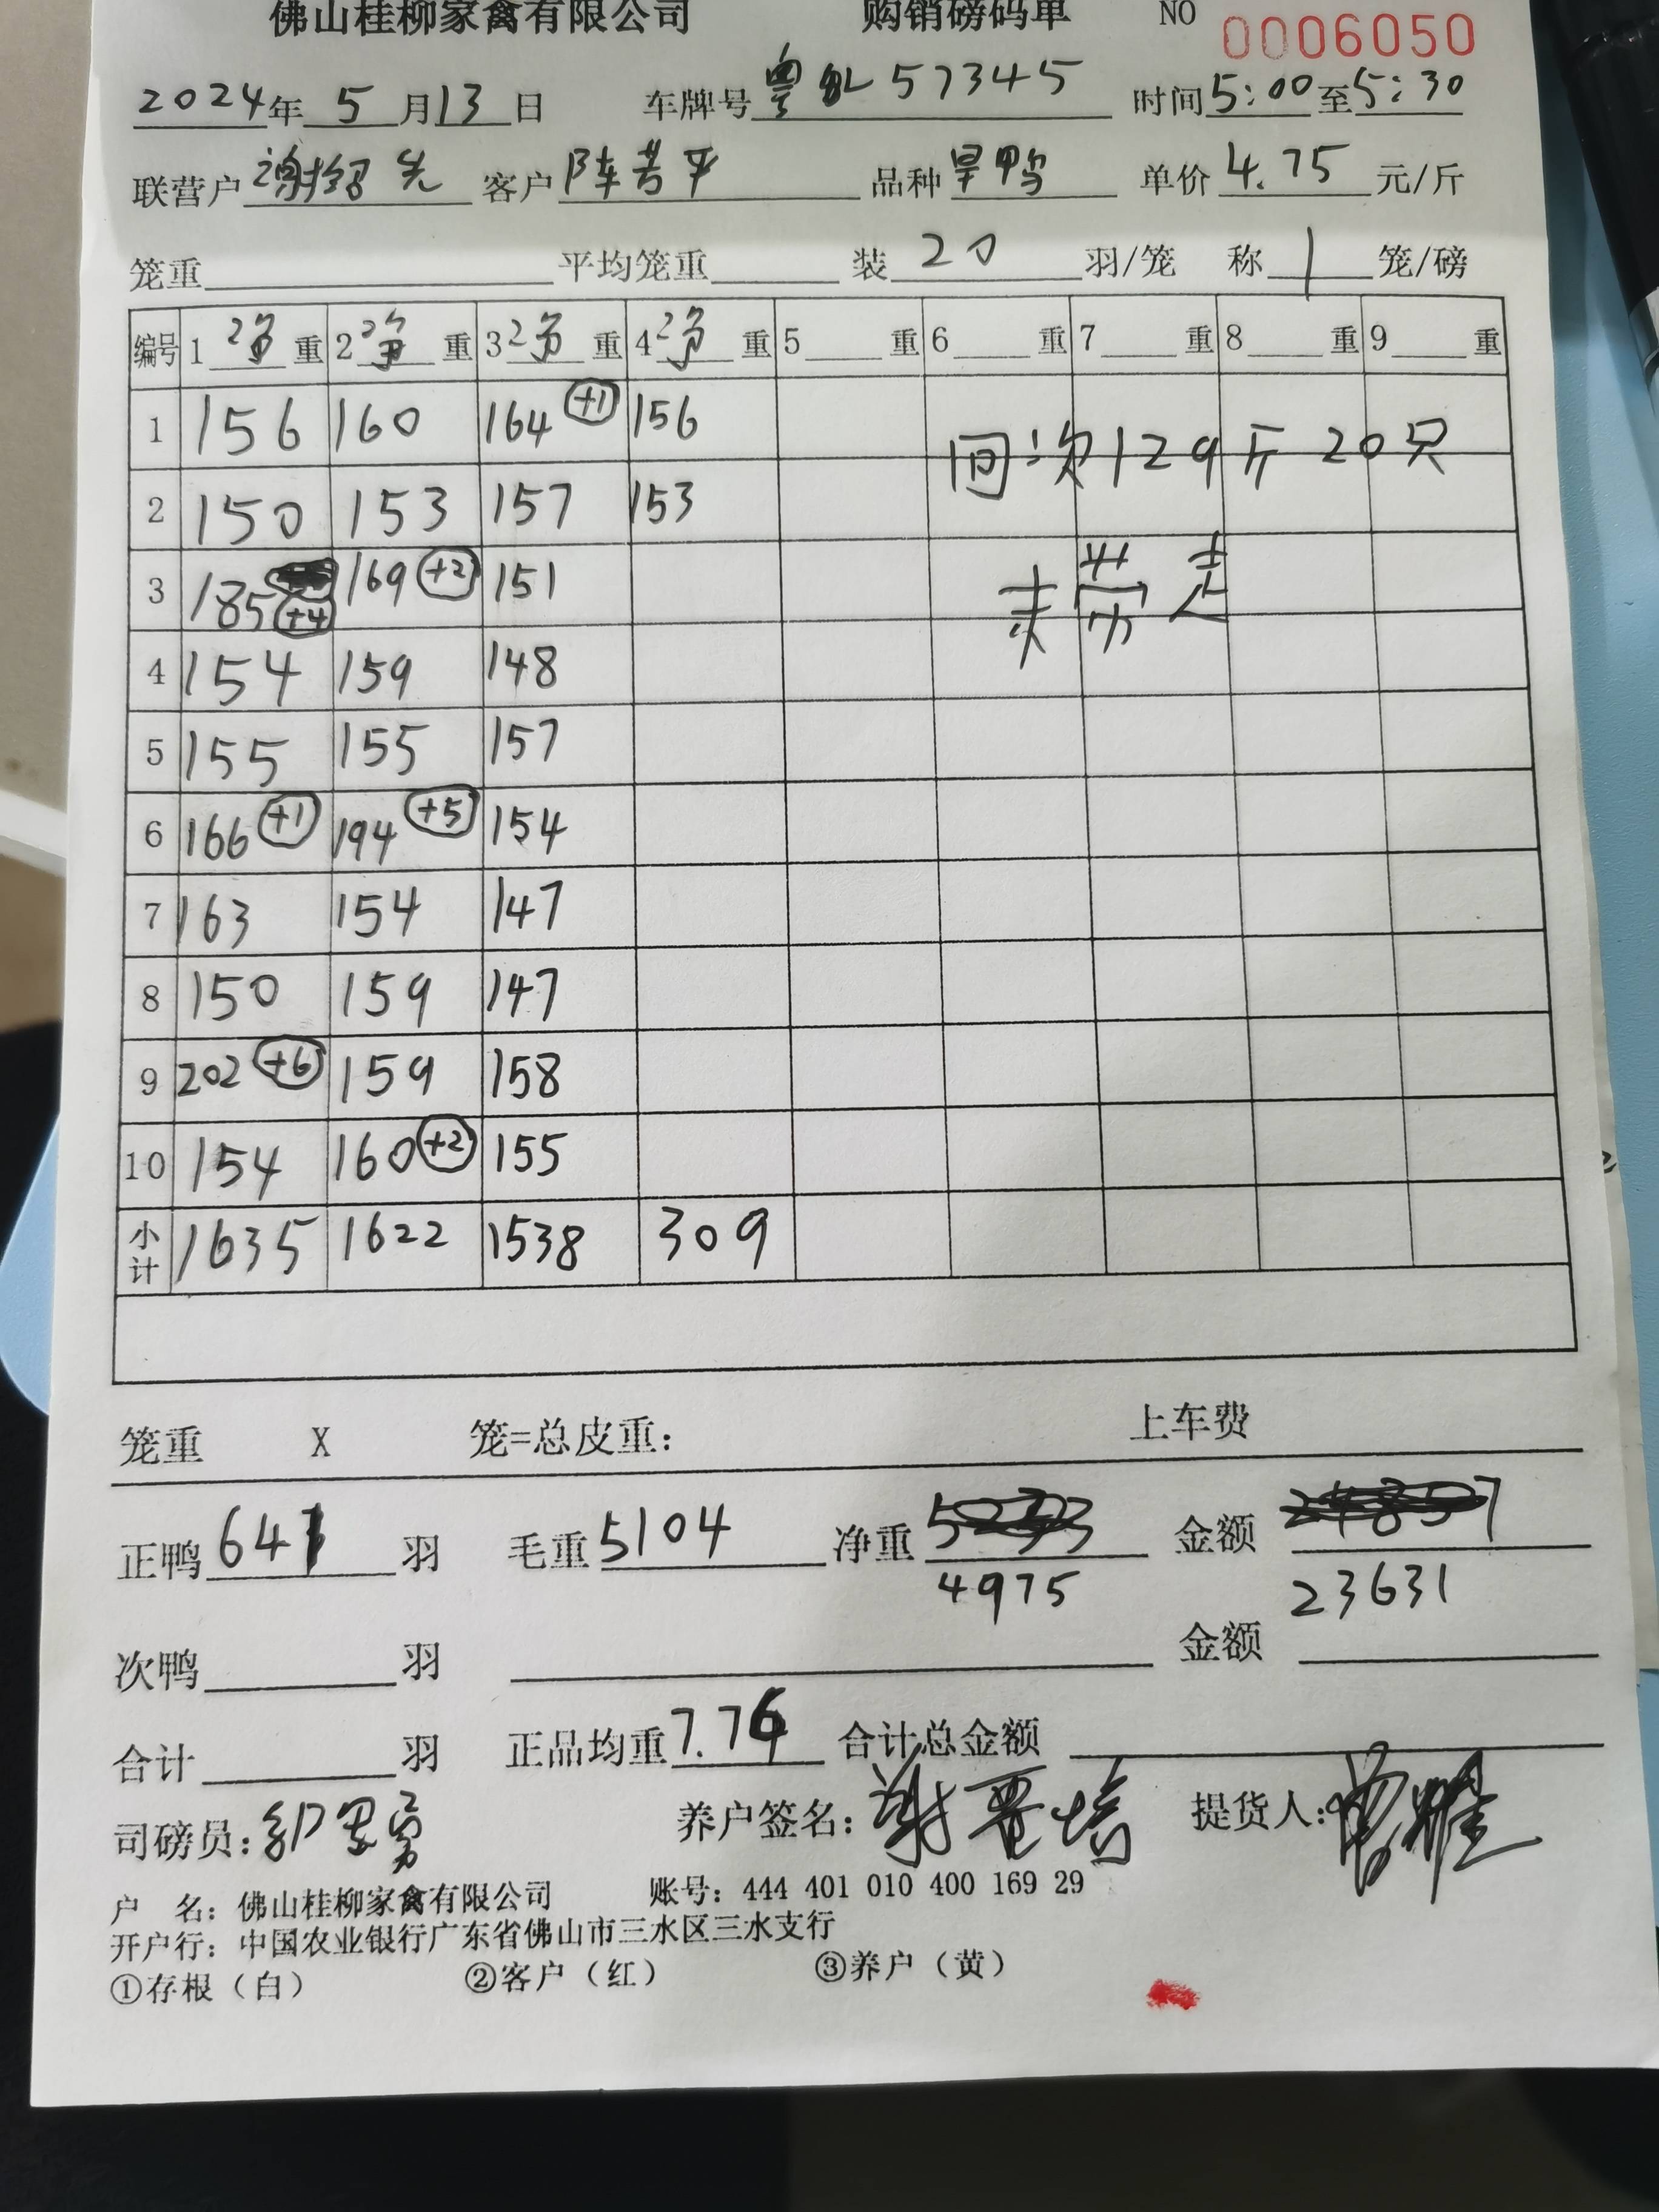 佛山桂柳家禽有限公司 购销磅码单 NO 0006050
2024年 5 月 13 日 车牌号 粤 57345 时间 5:00 至 5:30
联营户 谢绍先 客户 陈芳平 品种 旱鸭 单价 4.75 元/斤
笼重 平均笼重 装 20 羽/笼 称 1 笼/磅
编号 1 净 重 2 净 重 3 净 重 4 净 重 5 重 6 重 7 重 8 重 9 重
1 156 160 164 +1 156
间次129斤20只
2 150 153 157 153
3 185 +4 169 +2 151
未带走
4 154 159 148
5 155 155 157
6 166 +1 194 +5 154
7 163 154 147
8 150 159 147
9 202 +6 159 158
10 154 160 +2 155
小计 1635 1622 1538 309
笼重 X 笼=总皮重: 上车费
正鸭 641 羽 毛重 5104 净重 金额
4975 23631
次鸭 羽 金额
合计 羽 正品均重 7.76 合计总金额
司磅员: 养户签名: 谢 培 提货人:
户 名: 佛山桂柳家禽有限公司 账号: 444 401 010 400 169 29
开户行: 中国农业银行广东省佛山市三水区三水支行
①存根(白) ②客户(红) ③养户(黄)